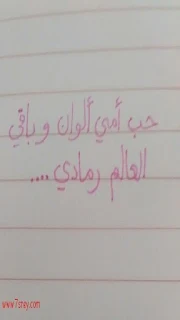 حب أمي ألوان و باقي
العالم رمادي ....
www.7sry.com